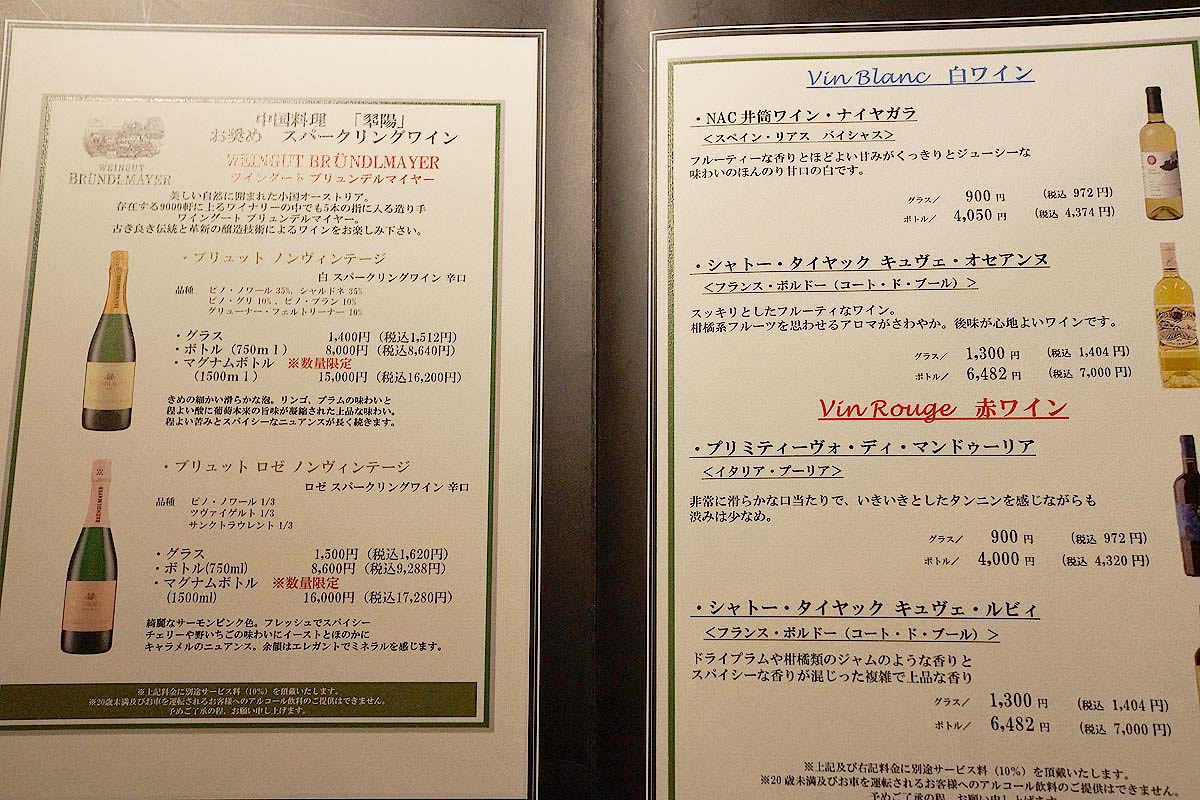 WEINGUT
BRÜNDLMAYER
中国料理 「翆陽」
お奨め スパークリングワイン
WEINGUT BRÜNDLMAYER
ワイングート ブリュンデルマイヤー
美しい自然に囲まれた小国オーストリア。
存在する9000軒に上るワイナリーの中でも5本の指に入る造り手
ワイングート ブリュンデルマイヤー。
古き良き伝統と革新の醸造技術によるワインをお楽しみ下さい。
・ブリュット ノンヴィンテージ
白 スパークリングワイン 辛口
品種 ピノ・ノワール 35%、シャルドネ 35%
ピノ・グリ 10%、ピノ・ブラン 10%
グリューナー・フェルトリーナー 10%
・グラス 1,400円 (税込1,512円)
・ボトル (750mｌ) 8,000円 (税込8,640円)
・マグナムボトル ※数量限定
(1500mｌ) 15,000円 (税込16,200円)
きめの細かい滑らかな泡。リンゴ、プラムの味わいと
程よい酸に葡萄本来の旨味が凝縮された上品な味わい。
程よい苦みとスパイシーなニュアンスが長く続きます。
・ブリュット ロゼ ノンヴィンテージ
ロゼ スパークリングワイン 辛口
品種 ピノ・ノワール 1/3
ツヴァイゲルト 1/3
サンクトラウレント 1/3
・グラス 1,500円 (税込1,620円)
・ボトル(750ml) 8,600円 (税込9,288円)
・マグナムボトル ※数量限定
(1500ml) 16,000円 (税込17,280円)
綺麗なサーモンピンク色。フレッシュでスパイシー
チェリーや野いちごの味わいにイーストとほのかに
キャラメルのニュアンス。余韻はエレガントでミネラルを感じます。
※上記料金に別途サービス料（10%）を頂戴いたします。
※20歳未満及びお車を運転されるお客様へのアルコール飲料のご提供はできません。
予めご了承の程、お願い申し上げます。
Vin Blanc 白ワイン
・NAC 井筒ワイン・ナイヤガラ
＜スペイン・リアス バイシャス＞
フルーティーな香りとほどよい甘みがくっきりとジューシーな
味わいのほんのり甘口の白です。
グラス／ 900 円 (税込 972 円)
ボトル／ 4,050 円 (税込 4,374 円)
・シャトー・タイヤック キュヴェ・オセアンヌ
＜フランス・ボルドー（コート・ド・ブール）＞
スッキリとしたフルーティなワイン。
柑橘系フルーツを思わせるアロマがさわやか。後味が心地よいワインです。
グラス／ 1,300 円 (税込 1,404 円)
ボトル／ 6,482 円 (税込 7,000 円)
Vin Rouge 赤ワイン
・プリミティーヴォ・ディ・マンドゥーリア
＜イタリア・プーリア＞
非常に滑らかな口当たりで、いきいきとしたタンニンを感じながらも
渋みは少なめ。
グラス／ 900 円 (税込 972 円)
ボトル／ 4,000 円 (税込 4,320 円)
・シャトー・タイヤック キュヴェ・ルビィ
＜フランス・ボルドー（コート・ド・ブール）＞
ドライプラムや柑橘類のジャムのような香りと
スパイシーな香りが混じった複雑で上品な香り
グラス／ 1,300 円 (税込 1,404 円)
ボトル／ 6,482 円 (税込 7,000 円)
※上記及び右記料金に別途サービス料（10%）を頂戴いたします。
※20 歳未満及びお車を運転されるお客様へのアルコール飲料のご提供はできません。
予めご了承の程、お願い申し上げます。